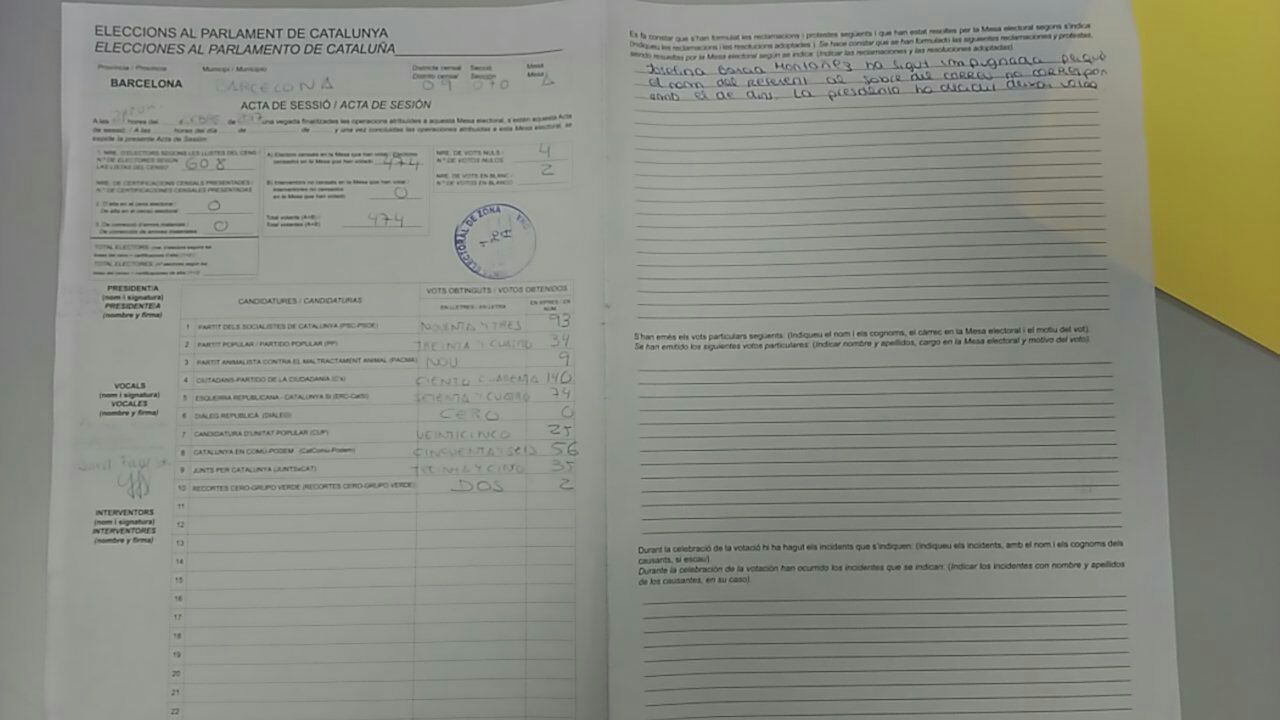 ELECCIONS AL PARLAMENT DE CATALUNYA
ELECCIONES AL PARLAMENTO DE CATALUÑA
Província / Provincia
Municipi / Municipio
Districte censal
Distrito censal
Secció
Sección
Mesa
Mesa
BARCELONA
BARCELONA
09
070
A
ACTA DE SESSIÓ / ACTA DE SESIÓN
A les hores del de 2017 una vegada finalitzades les operacions atribuïdes a aquesta Mesa electoral, s'estén aquesta Acta
de sessió / A las horas del día de de y una vez concluidas las operaciones atribuidas a esta Mesa electoral, se
expide la presente Acta de Sesión.
1. NRE. D'ELECTORS SEGONS LES LLISTES DEL CENS /
N.º DE ELECTORES SEGÚN
LAS LISTAS DEL CENSO
608
NRE. DE CERTIFICACIONS CENSALS PRESENTADES /
N.º DE CERTIFICACIONES CENSALES PRESENTADAS
2. D'alta en el cens electoral /
De alta en el censo electoral
0
3. De correcció d'errors materials /
De corrección de errores materiales
0
TOTAL ELECTORS
TOTAL ELECTORES
A) Electors censats en la Mesa que han votat / Electores
censados en la Mesa que han votado
474
B) Interventors no censats en la Mesa que han votat /
Interventores no censados
en la Mesa que han votado
0
Total votants (A+B) /
Total votantes (A+B)
474
NRE. DE VOTS NULS /
N.º DE VOTOS NULOS
4
NRE. DE VOTS EN BLANC /
N.º DE VOTOS EN BLANCO
2
ELECTORAL DE ZONA
PRESIDENT/A
(nom i signatura)
PRESIDENTE/A
(nombre y firma)
VOCALS
(nom i signatura)
VOCALES
(nombre y firma)
INTERVENTORS
(nom i signatura)
INTERVENTORES
(nombre y firma)
CANDIDATURES / CANDIDATURAS
VOTS OBTINGUTS / VOTOS OBTENIDOS
EN LLETRES / EN LETRA
EN XIFRES / EN NÚM.
1 PARTIT DELS SOCIALISTES DE CATALUNYA (PSC-PSOE) NOVENTA Y TRES 93
2 PARTIT POPULAR / PARTIDO POPULAR (PP) TREINTA Y CUATRO 34
3 PARTIT ANIMALISTA CONTRA EL MALTRACTAMENT ANIMAL (PACMA) NOU 9
4 CIUTADANS-PARTIDO DE LA CIUDADANÍA (C's) CIENTO CUARENTA 140
5 ESQUERRA REPUBLICANA - CATALUNYA SÍ (ERC-CatSí) SETENTA Y CUATRO 74
6 DIÀLEG REPUBLICÀ (DIÀLEG) CERO 0
7 CANDIDATURA D'UNITAT POPULAR (CUP) VEINTICINCO 25
8 CATALUNYA EN COMÚ-PODEM (CatComú-Podem) CINCUENTA Y SEIS 56
9 JUNTS PER CATALUNYA (JUNTSxCAT) TREINTA Y CINCO 35
10 RECORTES CERO-GRUPO VERDE (RECORTES CERO-GRUPO VERDE) DOS 2
11
12
13
14
15
16
17
18
19
20
21
22
Es fa constar que s'han formulat les reclamacions i protestes següents i que han estat resoltes per la Mesa electoral segons s'indica
(Indiqueu les reclamacions i les resolucions adoptades). Se hace constar que se han formulado las siguientes reclamaciones y protestas,
siendo resueltas por la Mesa electoral según se indica (Indicar las reclamaciones y las resoluciones adoptadas).
Josefina Garcia Montañez ha sigut impugnada perquè
el nom del referent al sobre del correu no correspon
amb el de dins. La presidenta ha decidit
S'han emès els vots particulars següents: (Indiqueu el nom i els cognoms, el càrrec en la Mesa electoral i el motiu del vot).
Se han emitido los siguientes votos particulares: (Indicar nombre y apellidos, cargo en la Mesa electoral y motivo del voto).
Durant la celebració de la votació hi ha hagut els incidents que s'indiquen: (indiqueu els incidents, amb el nom i els cognoms dels
causants, si escau).
Durante la celebración de la votación han ocurrido los incidentes que se indican: (Indicar los incidentes con nombre y apellidos
de los causantes, en su caso).